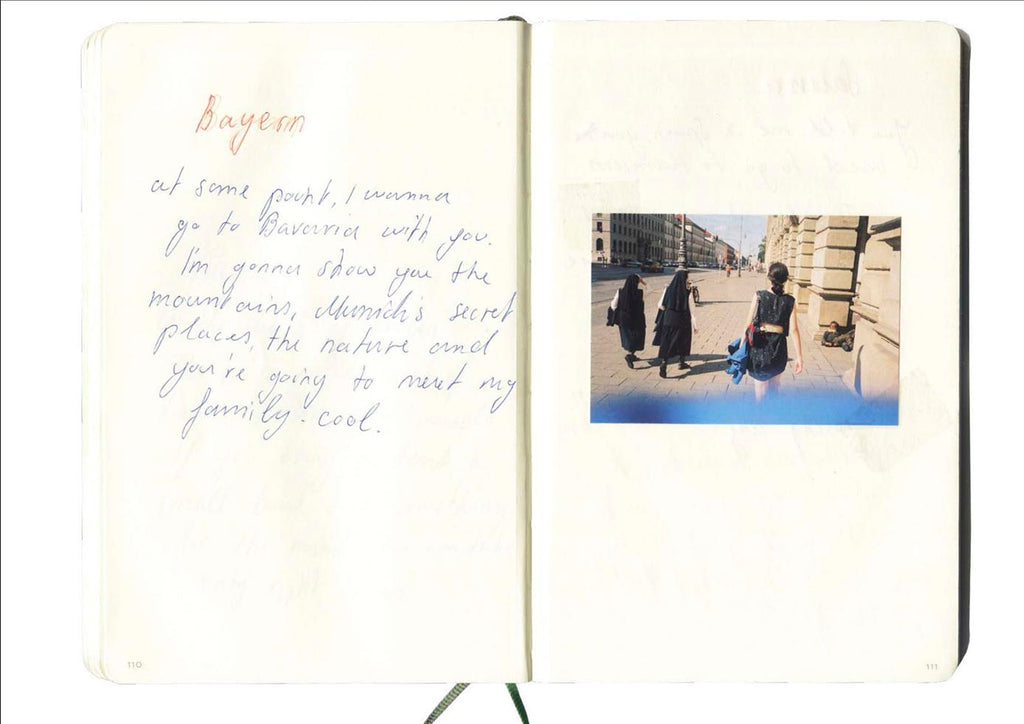 Bayern
at some point, I wanna
go to Bavaria with you.
I'm gonna show you the
mountains, Munich's secret
places, the nature and
you're going to meet my
family. cool.
110
111